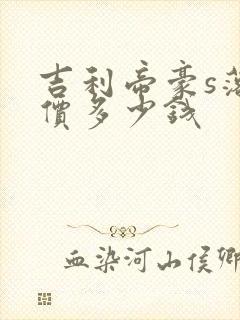 吉利帝豪s落
價多少錢
血染河山侯卿